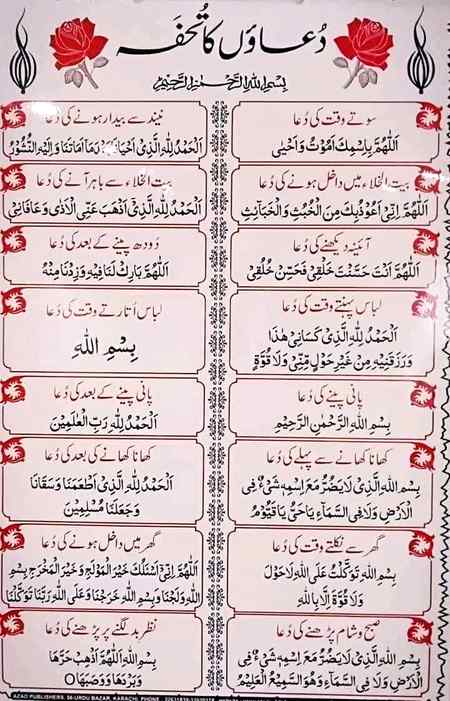 دُعاؤں کا تُحفَہ
بِسْمِ اللهِ الرَّحْمٰنِ الرَّحِيْمِ
سوتے وقت کی دُعا
اَللّٰهُمَّ بِاسْمِكَ اَمُوْتُ وَاَحْيٰى
نیند سے بیدار ہونے کی دُعا
اَلْحَمْدُ لِلّٰهِ الَّذِىْ اَحْيَانَا بَعْدَ مَا اَمَاتَنَا وَاِلَيْهِ النُّشُوْرُ
بیت الخلاء میں داخل ہونے کی دُعا
اَللّٰهُمَّ اِنِّىْ اَعُوْذُبِكَ مِنَ الْخُبُثِ وَالْخَبَآئِثِ
بیت الخلاء سے باہر آنے کی دُعا
اَلْحَمْدُ لِلّٰهِ الَّذِىْ اَذْهَبَ عَنِّى الْاَذٰى وَعَافَانِىْ
آئینہ دیکھنے کی دُعا
اَللّٰهُمَّ اَنْتَ حَسَّنْتَ خَلْقِىْ فَحَسِّنْ خُلُقِىْ
دُودھ پینے کے بعد کی دُعا
اَللّٰهُمَّ بَارِكْ لَنَا فِيْهِ وَزِدْنَا مِنْهُ
لباس پہنتے وقت کی دُعا
اَلْحَمْدُ لِلّٰهِ الَّذِىْ كَسَانِىْ هٰذَا
وَرَزَقَنِيْهِ مِنْ غَيْرِ حَوْلٍ مِّنِّىْ وَلَا قُوَّةٍ
لباس اُتارتے وقت کی دُعا
بِسْمِ اللهِ
پانی پینے کی دُعا
بِسْمِ اللهِ الرَّحْمٰنِ الرَّحِيْمِ
پانی پینے کے بعد کی دُعا
اَلْحَمْدُ لِلّٰهِ رَبِّ الْعٰلَمِيْنَ
کھانا کھانے سے پہلے کی دُعا
بِسْمِ اللهِ الَّذِىْ لَا يَضُرُّ مَعَ اِسْمِهٖ شَىْءٌ فِى
الْاَرْضِ وَلَا فِى السَّمَآءِ يَا حَىُّ يَا قَيُّوْمُ
کھانا کھانے کی بعد کی دُعا
اَلْحَمْدُ لِلّٰهِ الَّذِىْ اَطْعَمَنَا وَسَقَانَا
وَجَعَلَنَا مُسْلِمِيْنَ
گھر سے نکلتے وقت کی دُعا
بِسْمِ اللهِ تَوَكَّلْتُ عَلَى اللهِ لَا حَوْلَ
وَلَا قُوَّةَ اِلَّا بِاللهِ
گھر میں داخل ہونے کی دُعا
اَللّٰهُمَّ اِنِّىْ اَسْئَلُكَ خَيْرَ الْمَوْلَجِ وَخَيْرَ الْمَخْرَجِ بِسْمِ
اللهِ وَلَجْنَا وَبِسْمِ اللهِ خَرَجْنَا وَعَلَى اللهِ رَبِّنَا تَوَكَّلْنَا
صبح و شام پڑھنے کی دُعا
بِسْمِ اللهِ الَّذِىْ لَا يَضُرُّ مَعَ اِسْمِهٖ شَىْءٌ فِى
الْاَرْضِ وَلَا فِى السَّمَآءِ وَهُوَ السَّمِيْعُ الْعَلِيْمُ
نظر بد لگنے پر پڑھنے کی دُعا
بِسْمِ اللهِ اَللّٰهُمَّ اَذْهِبْ حَرَّهَا
وَبَرْدَهَا وَوَصَبَهَا
AZAD PUBLISHERS, 56-URDU BAZAR, KARACHI. PHONE